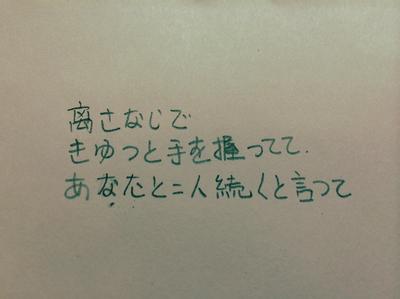 離さなじで
きゆつと手を握ってて.
あなたと二人続くと言って